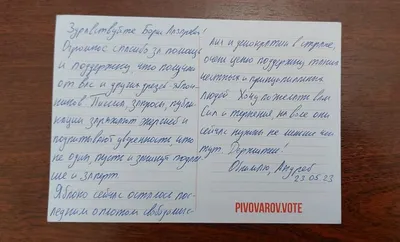 Здравствуйте Борис Лазаревич!
Огромное спасибо за помощь
и поддержку, что получаю
от вас и других друзей яблоч-
ников. Письма, запросы, публи-
кации заряжают энергией и
подпитывают уверенность, что
не один, пусто и
и заперт.
Яблоко сейчас осталось пос-
ледним оплотом свободомыс-
лия и демократии в стране,
очень ценю поддержку таких
честных и принципиальных
людей. Хочу пожелать вам
сил и терпения, на воле они
сейчас нужны не меньше чем
тут. Держитесь!
Обнимаю, Андрей
23.05.23
PIVOVAROV.VOTE